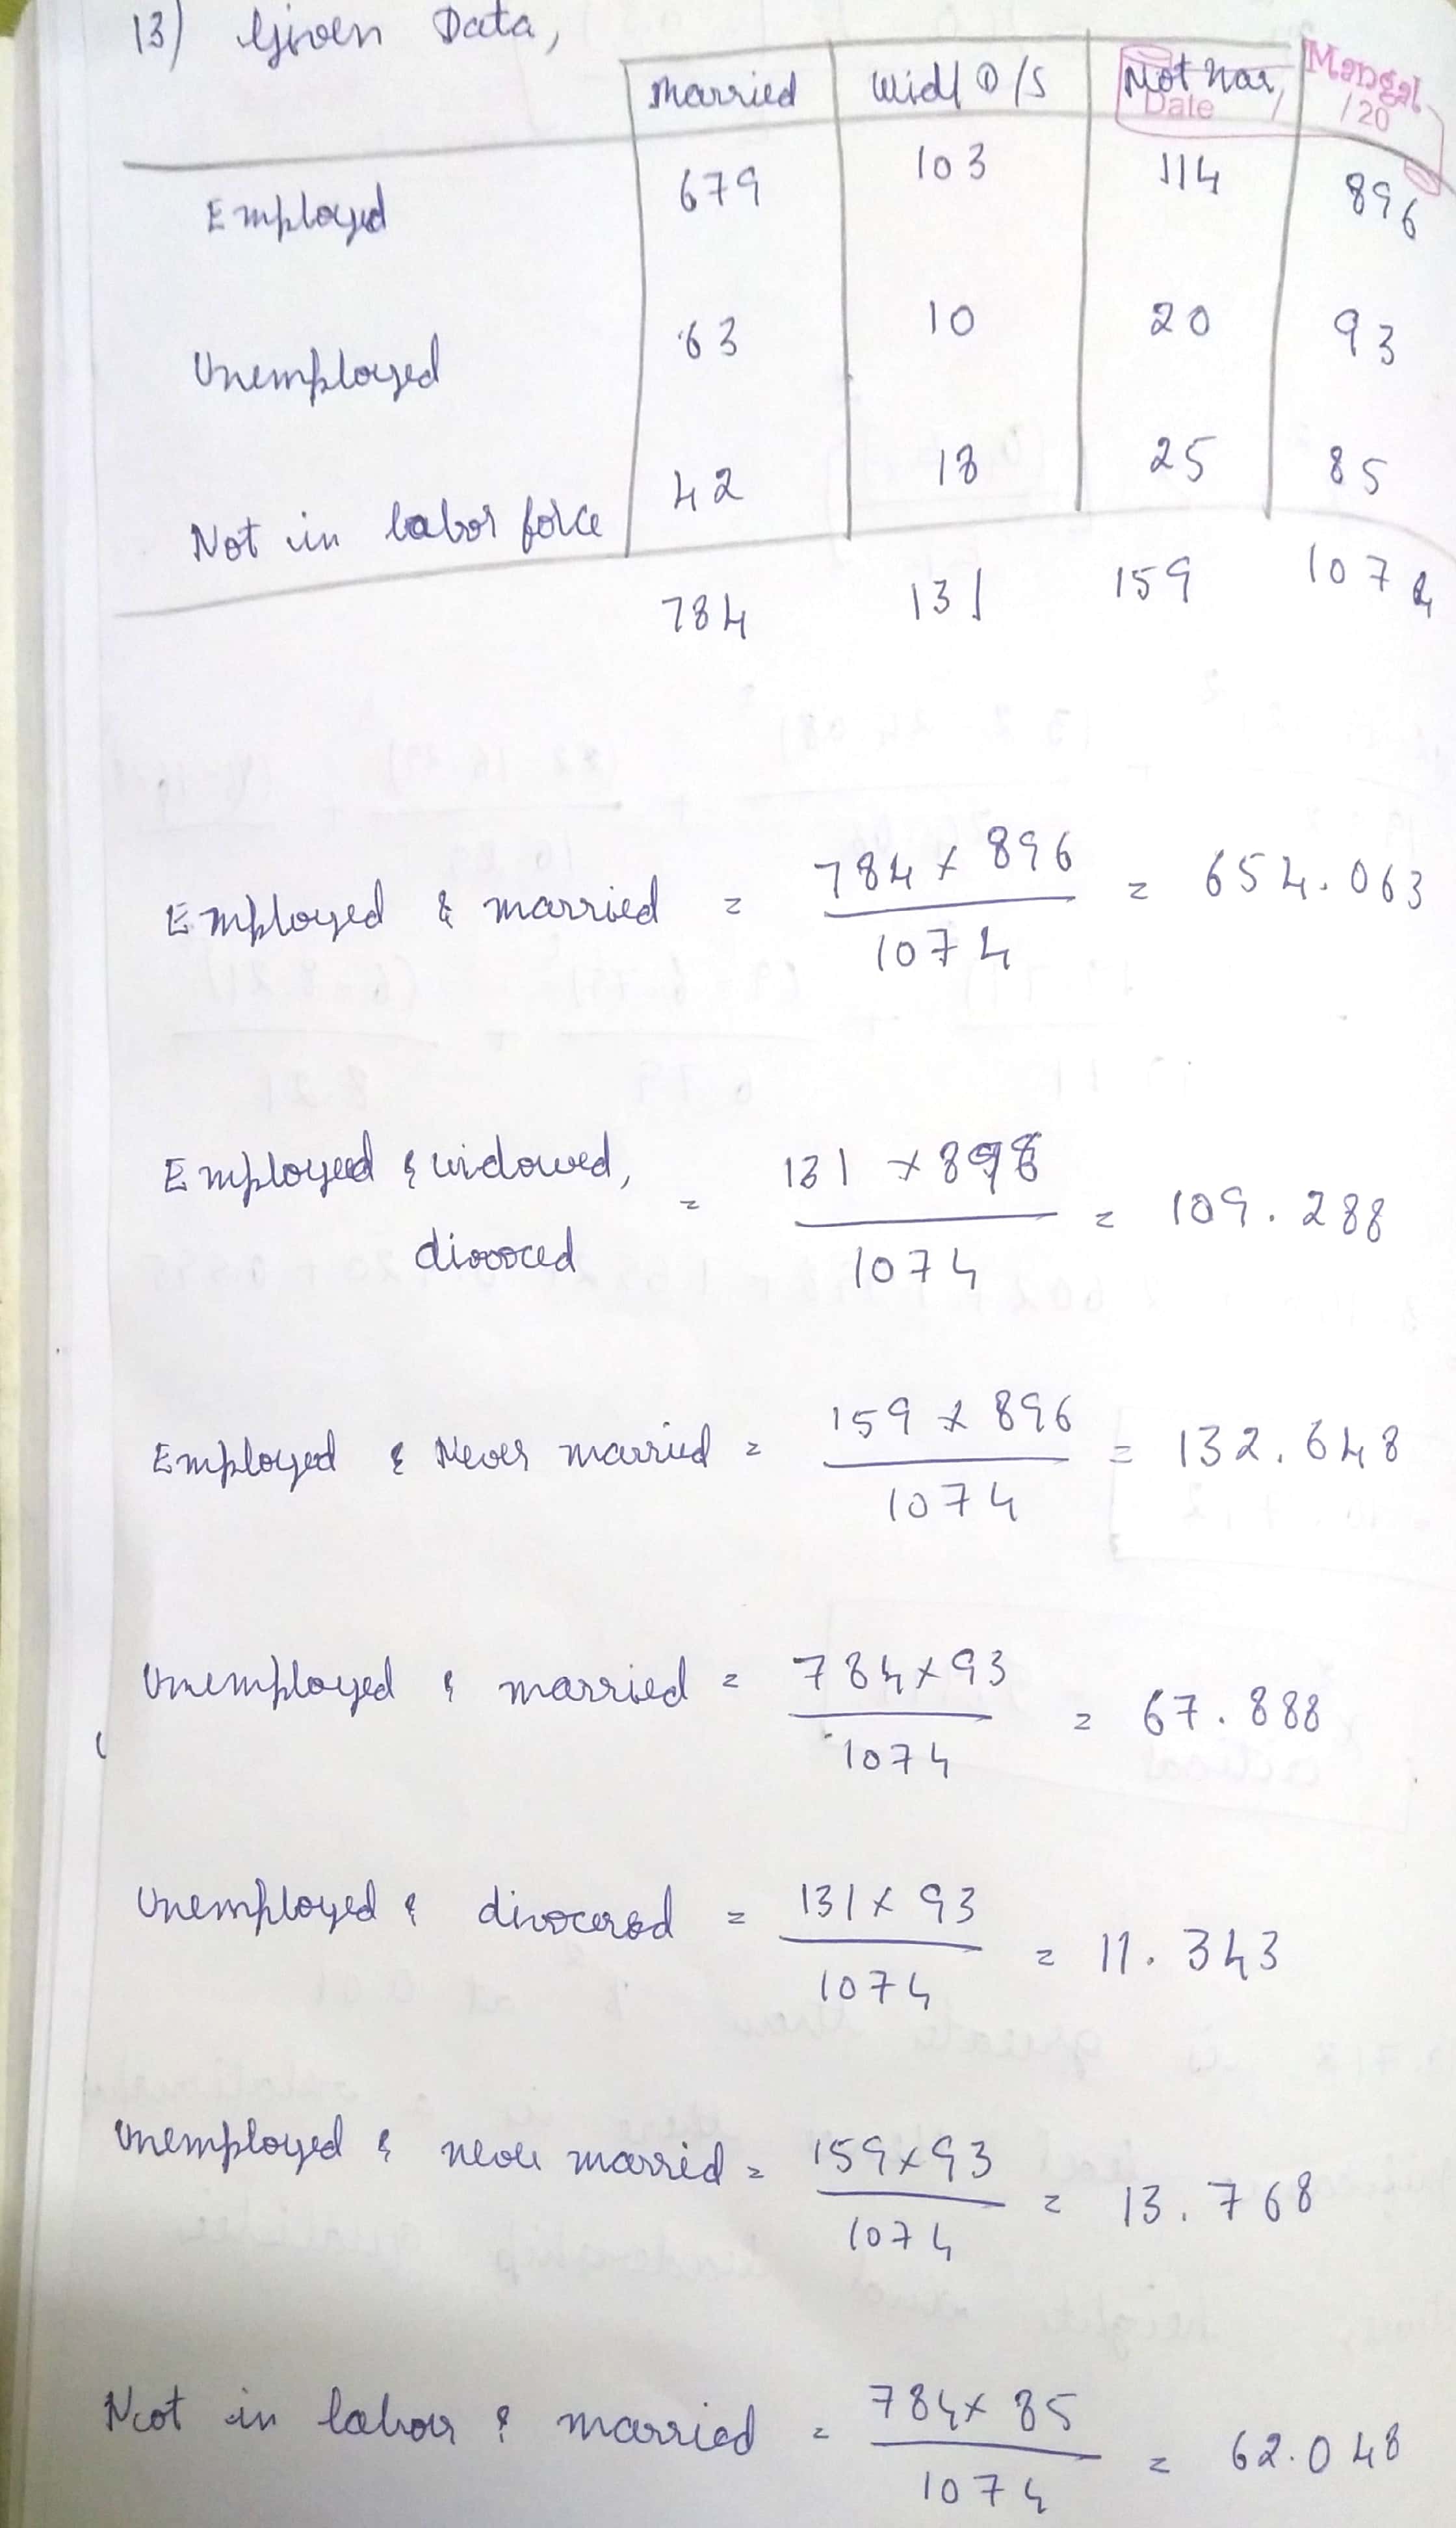 13) Given Data,
Married Wid/D/S Not Mar,
Mangal
Date / /20
Employed 679 103 114 896
Unemployed 63 10 20 93
Not in labor force 42 18 25 85
784 131 159 1074
Employed & married = 784 x 896 / 1074 = 654.063
Employeed & widowed, divoced = 131 x 896 / 1074 = 109.288
Employed & Never married = 159 x 896 / 1074 = 132.648
Unemployed & married = 784x93 / 1074 = 67.888
Unemployed & divocered = 131x 93 / 1074 = 11.343
Unemployed & never married = 159x93 / 1074 = 13.768
Not in labour & married = 784x 85 / 1074 = 62.048